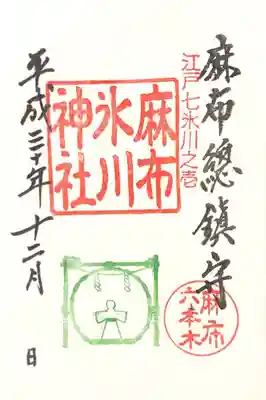 麻布總鎮守
江戸七氷川之壱
麻布
氷川
神社
麻布
六本木
平成三十年十二月 日